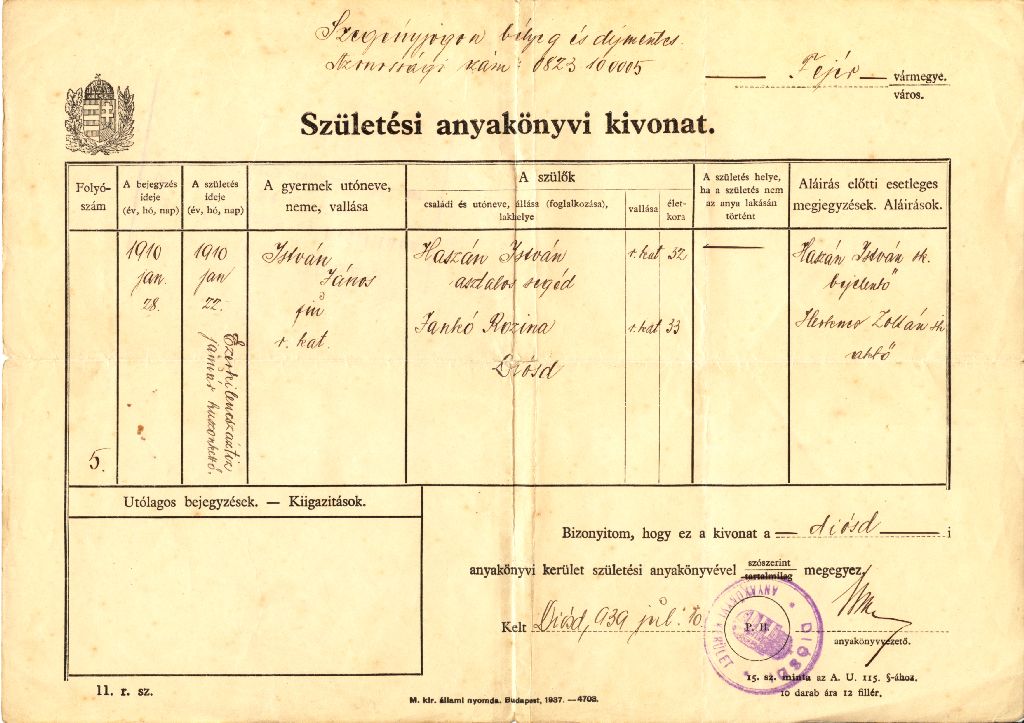 Szegényjogon bélyeg és díjmentes.
Azonossági szám: 0823 100005
Fejér vármegye.
város.
Születési anyakönyvi kivonat.
Folyó-
szám
A bejegyzés
ideje
(év, hó, nap)
A születés
ideje
(év, hó, nap)
A gyermek utóneve,
neme, vallása
A szülők
családi és utóneve, állása (foglalkozása),
lakhelye
vallása
élet-
kora
A születés helye,
ha a születés nem
az anya lakásán
történt
Aláírás előtti esetleges
megjegyzések. Aláírások.
5.
1910
jan.
28.
1910
jan
22.
Ezerkilencszáztíz
január huszonkettő.
István
János
fiú
r. kat.
Haszán István
asztalos segéd
r. kat 32
Jankó Rozina
r. kat 33
Diósd
Haszán István sk.
bejelentő
Zoltán sk
Utólagos bejegyzések. — Kiigazítások.
Bizonyitom, hogy ez a kivonat a — diósd — i
anyakönyvi kerület születési anyakönyvével szószerint megegyez.
tartalmilag
Kelt Diósd, 939 júl. 10
P. H.
ANYAKÖNYVI KERÜLET
DIÓSD
anyakönyvvezető.
15. sz. minta az A. U. 115. §-ához.
10 darab ára 12 fillér.
11. r. sz.
M. kir. állami nyomda. Budapest, 1937. —4703.